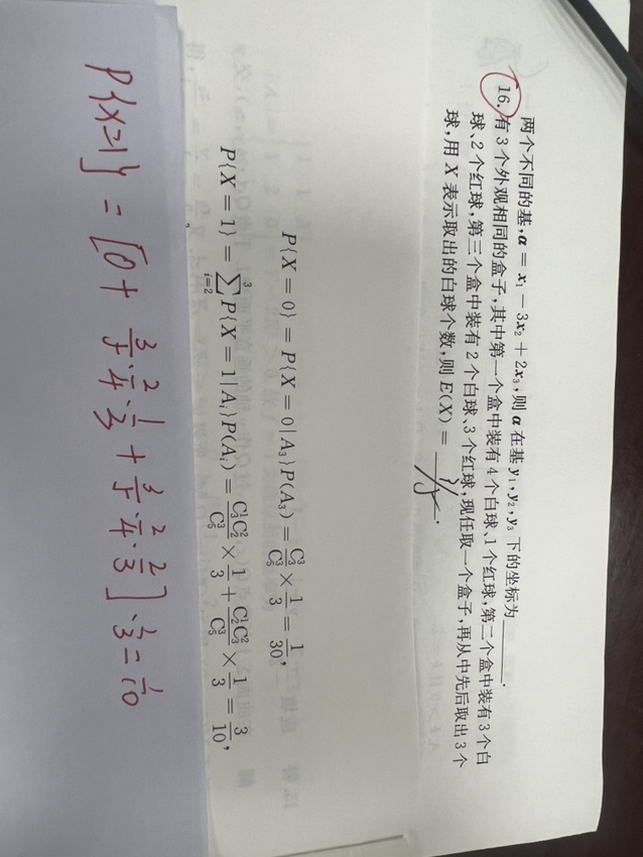 两个不同的基,α = x₁ − 3x₂ + 2x₃,则 α 在基 y₁,y₂,y₃ 下的坐标为______.
16. 有 3 个外观相同的盒子,其中第一个盒中装有 4 个白球、1 个红球,第二个盒中装有 3 个白
球、2 个红球,第三个盒中装有 2 个白球、3 个红球,现任取一个盒子,再从中先后取出 3 个
球,用 X 表示取出的白球个数,则 E(X) = ______.
P{X = 0} = P{X = 0|A₃}P(A₃) = C₃³/C₅³ × 1/3 = 1/30,
P{X = 1} = ∑_{i=2}^{3} P{X = 1|Aᵢ}P(Aᵢ) = C₃¹C₂²/C₅³ × 1/3 + C₂¹C₃²/C₅³ × 1/3 = 3/10,
P{X=1} = [0 + 3/5·2/4·1/3 + 3/5·2/4·2/3]·1/3 = 1/10